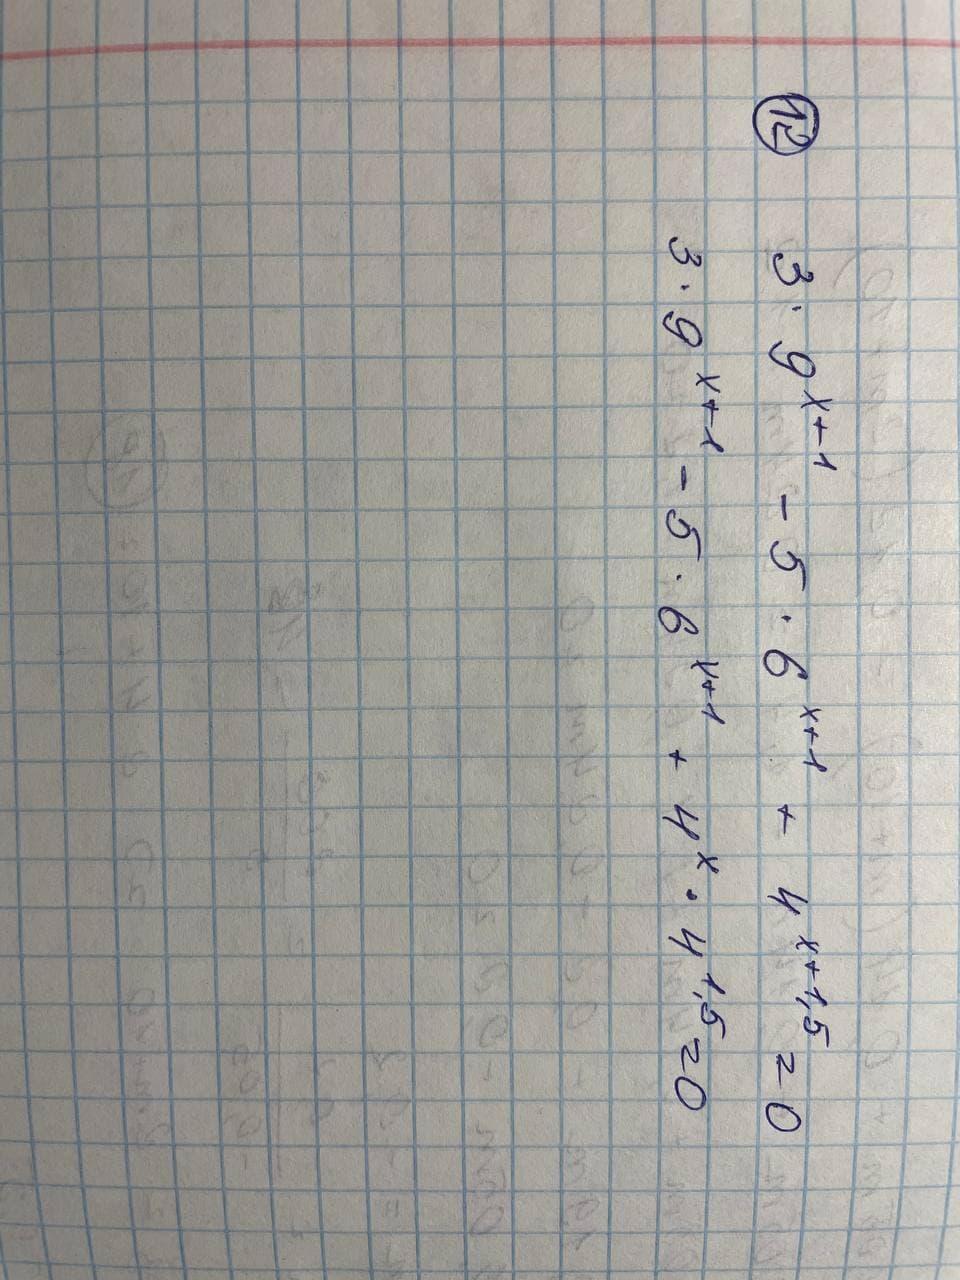 12 3 · 9^{x+1} - 5 · 6^{x+1} + 4^{x+1,5} = 0
3 · 9^{x+1} - 5 · 6^{x+1} + 4^x · 4^{1,5} = 0